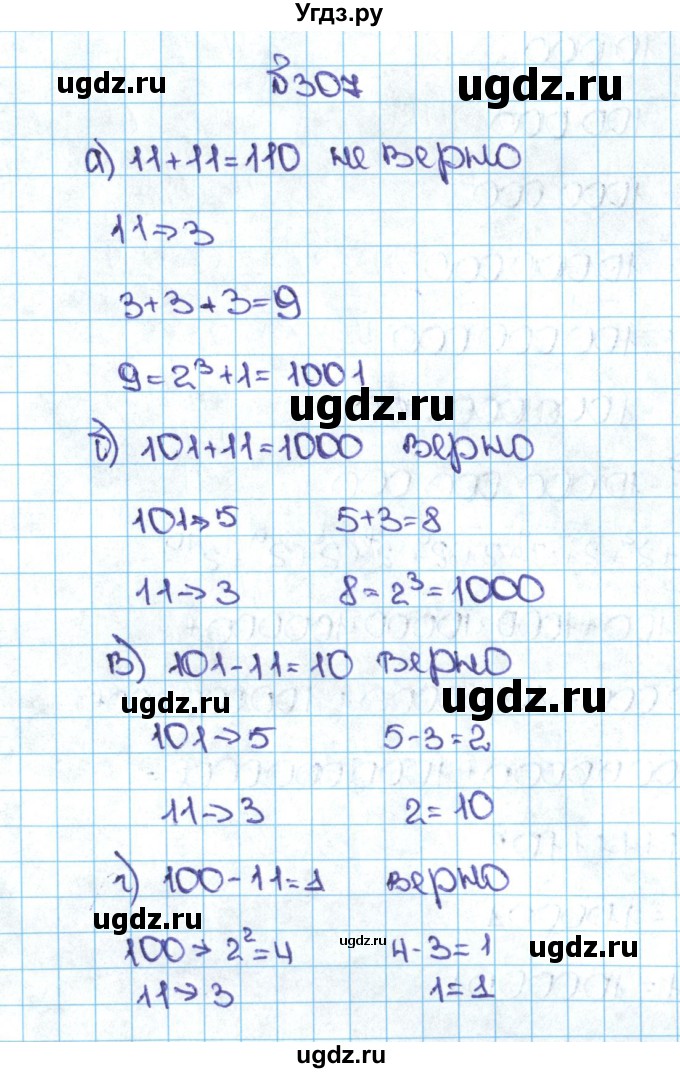 Угдз.ру
ugdz.ru ugdz.ru
№307
а) 11+11=110 не верно
11→3
3+3+3=9
9=2³+1=1001
ugdz.ru
б) 101+11=1000 верно
101→5 5+3=8
11→3 8=2³=1000
в) 101-11=10 верно
ugdz.ru ugdz.ru
101→5 5-3=2
11→3 2=10
г) 100-11=1 верно
ugdz.ru ugdz.ru ugdz.ru
100→2²=4 4-3=1
11→3 1=1
ugdz.ru